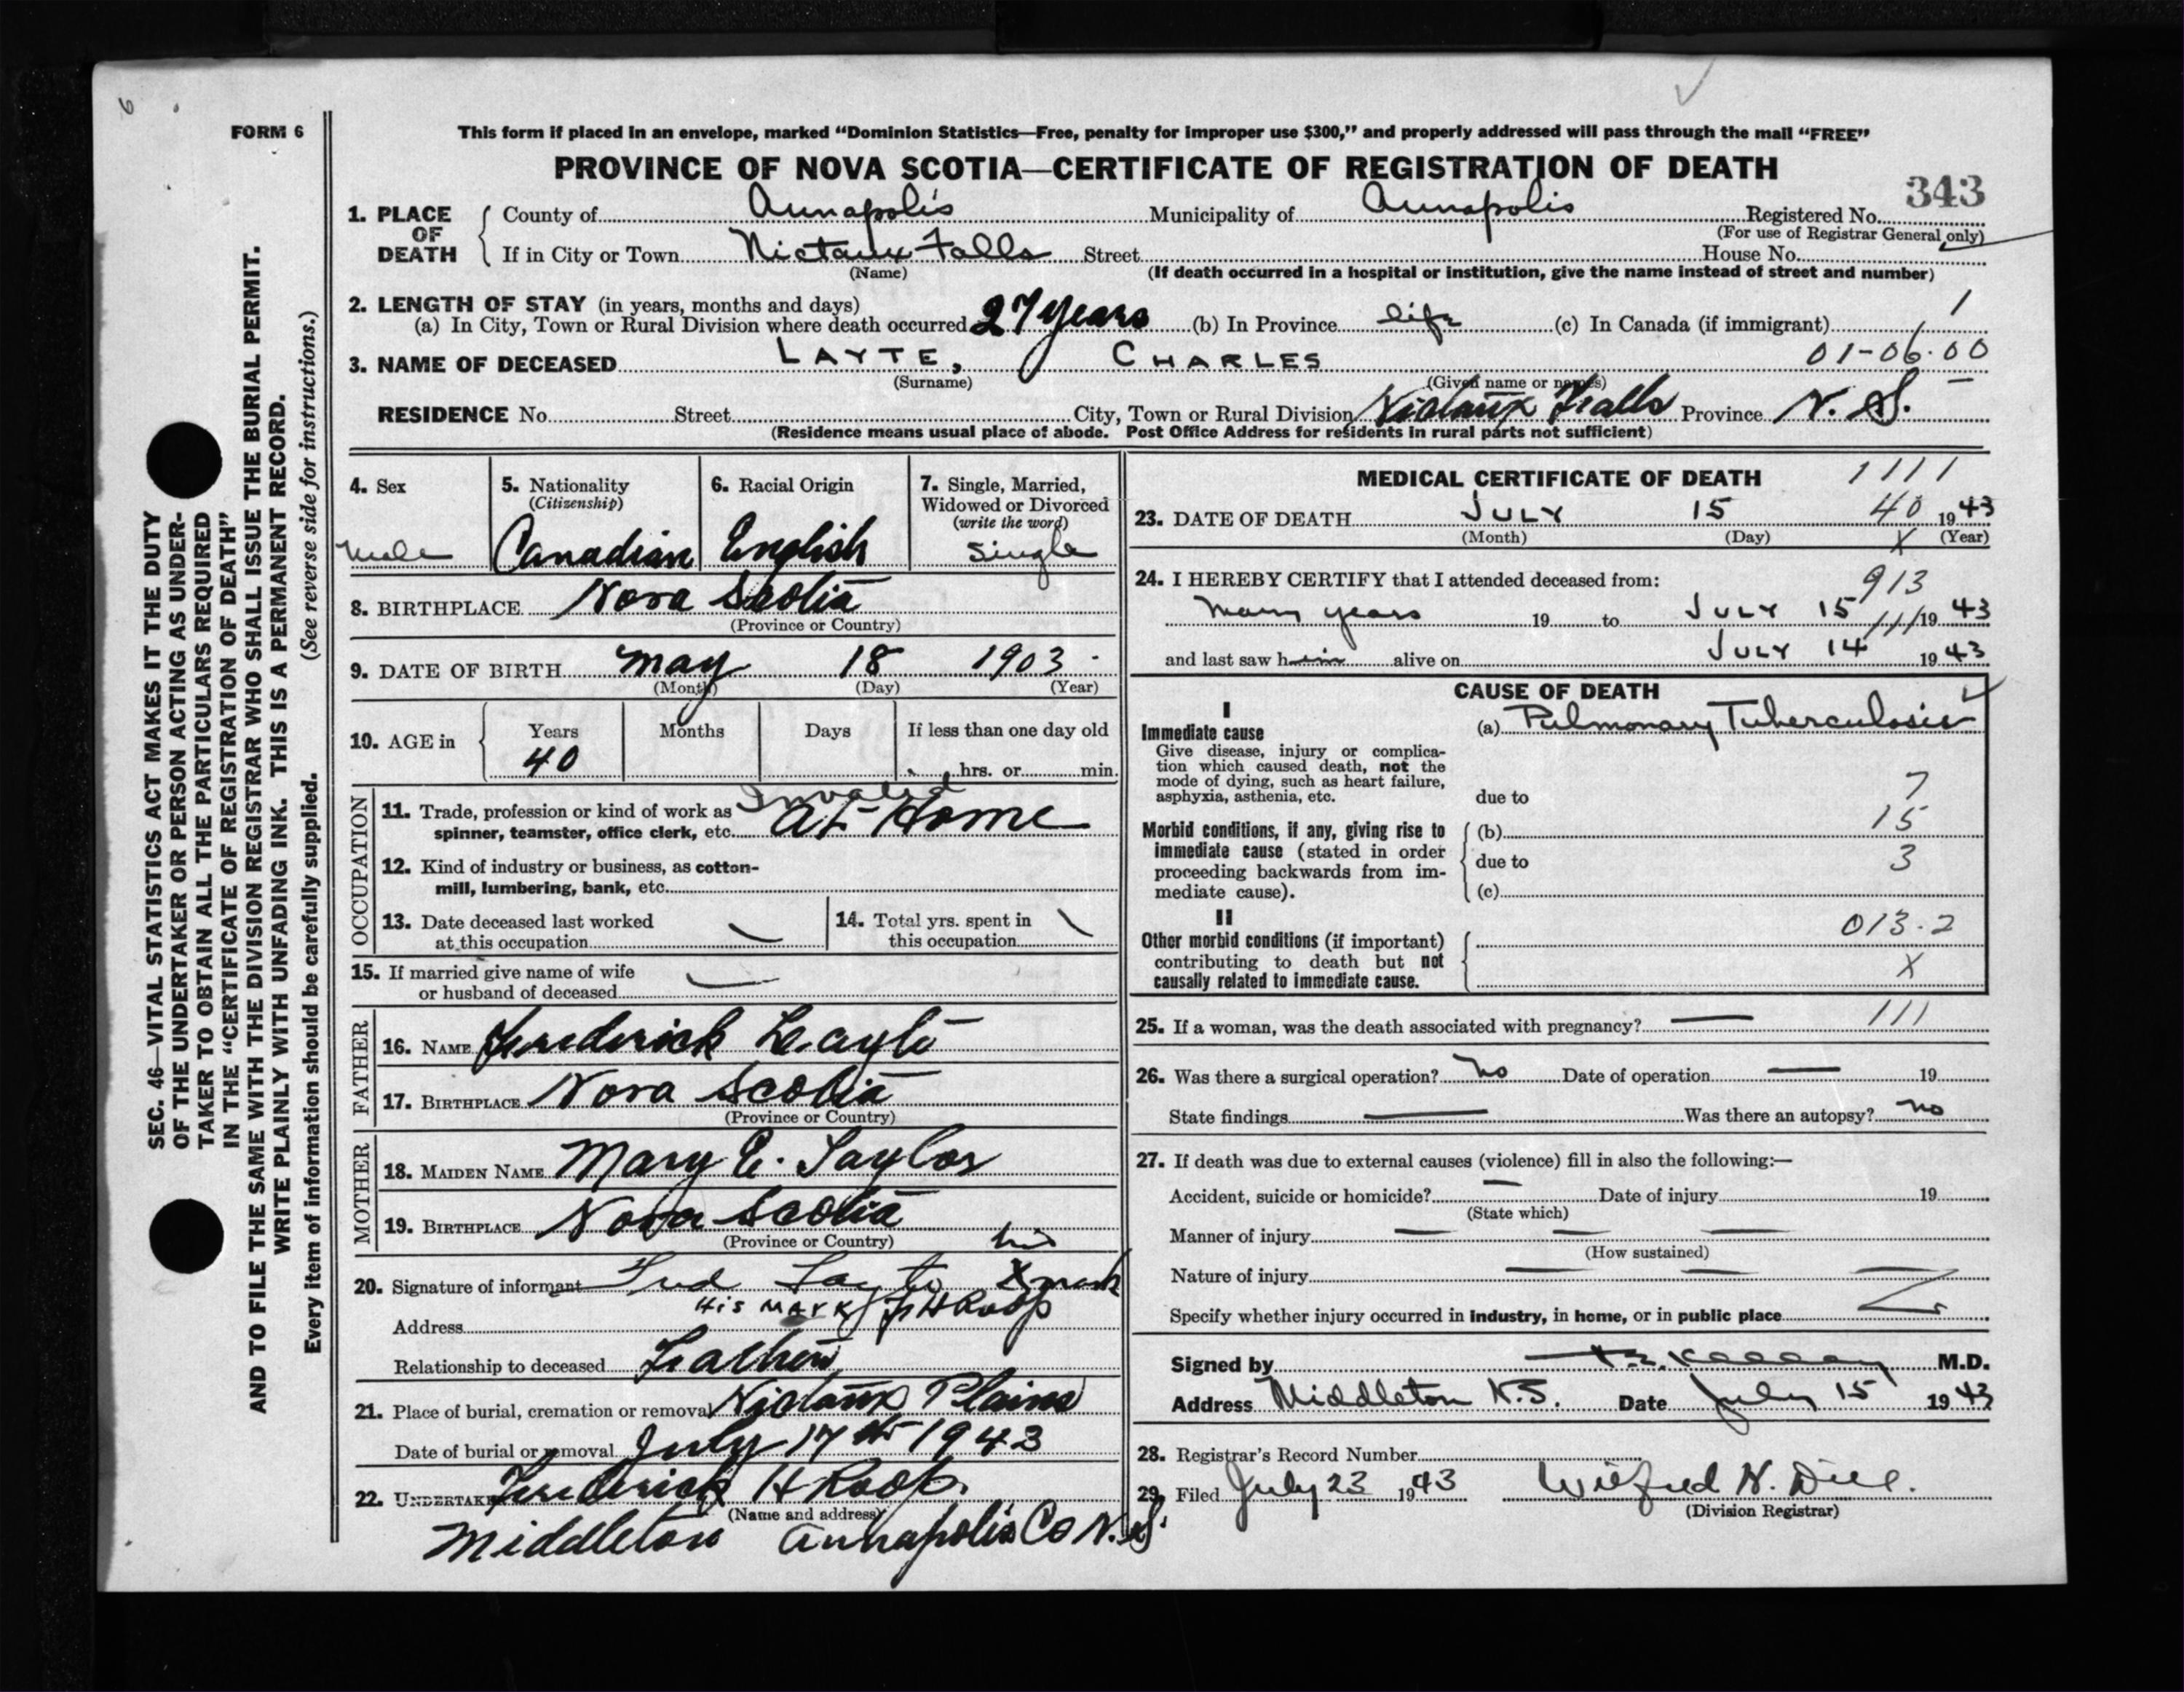 6
FORM 6
This form if placed in an envelope, marked "Dominion Statistics—Free, penalty for improper use $300," and properly addressed will pass through the mail "FREE"
PROVINCE OF NOVA SCOTIA—CERTIFICATE OF REGISTRATION OF DEATH
343
1. PLACE OF DEATH County of Annapolis Municipality of Annapolis Registered No.
(For use of Registrar General only)
If in City or Town Nictaux Falls Street House No.
(Name) (If death occurred in a hospital or institution, give the name instead of street and number)
2. LENGTH OF STAY (in years, months and days)
(a) In City, Town or Rural Division where death occurred 27 years (b) In Province life (c) In Canada (if immigrant) 1
3. NAME OF DECEASED LAYTE, CHARLES 01-06.00
(Surname) (Given name or names)
RESIDENCE No. Street City, Town or Rural Division Nictaux Falls Province N. S.
(Residence means usual place of abode. Post Office Address for residents in rural parts not sufficient)
4. Sex male
5. Nationality (Citizenship) Canadian
6. Racial Origin English
7. Single, Married, Widowed or Divorced (write the word) Single
8. BIRTHPLACE Nova Scotia
(Province or Country)
9. DATE OF BIRTH May 18 1903
(Month) (Day) (Year)
10. AGE in Years Months Days If less than one day old
40 hrs. or min.
OCCUPATION
11. Trade, profession or kind of work as Invalid
spinner, teamster, office clerk, etc. at Home
12. Kind of industry or business, as cotton-
mill, lumbering, bank, etc.
13. Date deceased last worked
at this occupation
14. Total yrs. spent in
this occupation
15. If married give name of wife
or husband of deceased
FATHER
16. NAME Frederick Layte
17. BIRTHPLACE Nova Scotia
(Province or Country)
MOTHER
18. MAIDEN NAME Mary E. Taylor
19. BIRTHPLACE Nova Scotia
(Province or Country) his
20. Signature of informant Fred Layte X mark
His MARK FHRoop
Address
Relationship to deceased Father
21. Place of burial, cremation or removal Nictaux Plains
Date of burial or removal July 17th 1943
22. UNDERTAKER Frederick H Roop
(Name and address)
Middleton Annapolis Co N.S.
MEDICAL CERTIFICATE OF DEATH 1111
23. DATE OF DEATH JULY 15 40 1943
(Month) (Day) X (Year)
24. I HEREBY CERTIFY that I attended deceased from: 913
many years 19 to JULY 15 111 1943
and last saw him alive on JULY 14 1943
CAUSE OF DEATH
I
Immediate cause (a) Pulmonary Tuberculosis
Give disease, injury or complica-
tion which caused death, not the
mode of dying, such as heart failure,
asphyxia, asthenia, etc. due to 7
15
Morbid conditions, if any, giving rise to (b)
immediate cause (stated in order due to 3
proceeding backwards from im-
mediate cause). (c)
II
013.2
Other morbid conditions (if important)
contributing to death but not X
causally related to immediate cause.
25. If a woman, was the death associated with pregnancy? 111
26. Was there a surgical operation? no Date of operation 19
State findings Was there an autopsy? no
27. If death was due to external causes (violence) fill in also the following:—
Accident, suicide or homicide? Date of injury 19
(State which)
Manner of injury
(How sustained)
Nature of injury
Specify whether injury occurred in industry, in home, or in public place
Signed by M.D.
Address Middleton N.S. Date July 15 1943
28. Registrar's Record Number
29. Filed July 23 1943 Wilfred N. Dill.
(Division Registrar)
SEC. 46—VITAL STATISTICS ACT MAKES IT THE DUTY
OF THE UNDERTAKER OR PERSON ACTING AS UNDER-
TAKER TO OBTAIN ALL THE PARTICULARS REQUIRED
IN THE "CERTIFICATE OF REGISTRATION OF DEATH"
AND TO FILE THE SAME WITH THE DIVISION REGISTRAR WHO SHALL ISSUE THE BURIAL PERMIT.
WRITE PLAINLY WITH UNFADING INK. THIS IS A PERMANENT RECORD.
Every item of information should be carefully supplied. (See reverse side for instructions.)